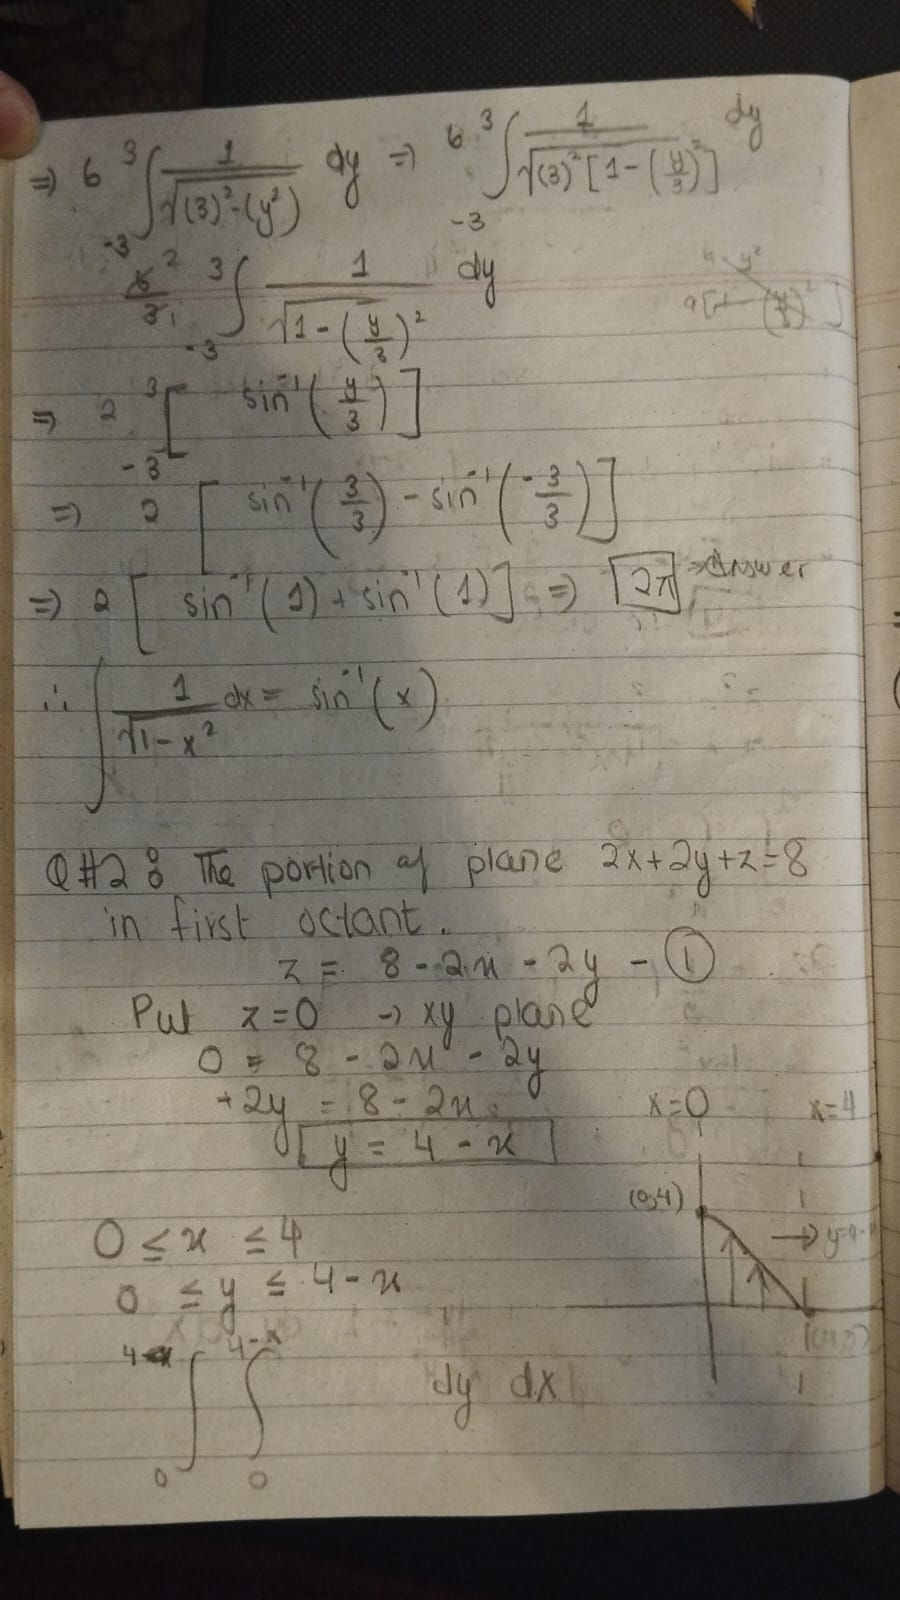 ⇒ 6 ³∫₋₃ 1/√((3)²-(y²)) dy ⇒ 6 ³∫₋₃ 1/√((3)²[1-(y/3)²]) dy
6²/3₁ ³∫₋₃ 1/√(1-(y/3)²) dy
⇒ 2 ³₋₃[ sin⁻¹(y/3) ]
⇒ 2 [ sin⁻¹(3/3) - sin⁻¹(-3/3) ]
⇒ 2 [ sin⁻¹(1) + sin⁻¹(1) ] ⇒ 2π → Answer
∴ ∫ 1/√(1-x²) dx = sin⁻¹(x)
Q#2: The portion of plane 2x+2y+z=8
in first octant.
z = 8-2x-2y - ①
Put z=0 → xy plane
0 = 8-2x-2y
+2y = 8-2x
y = 4-x
x=0 x=4
(0,4)
→ y=4-x
0 ≤ x ≤ 4
0 ≤ y ≤ 4-x
∫₀⁴ ∫₀⁴⁻ˣ dy dx